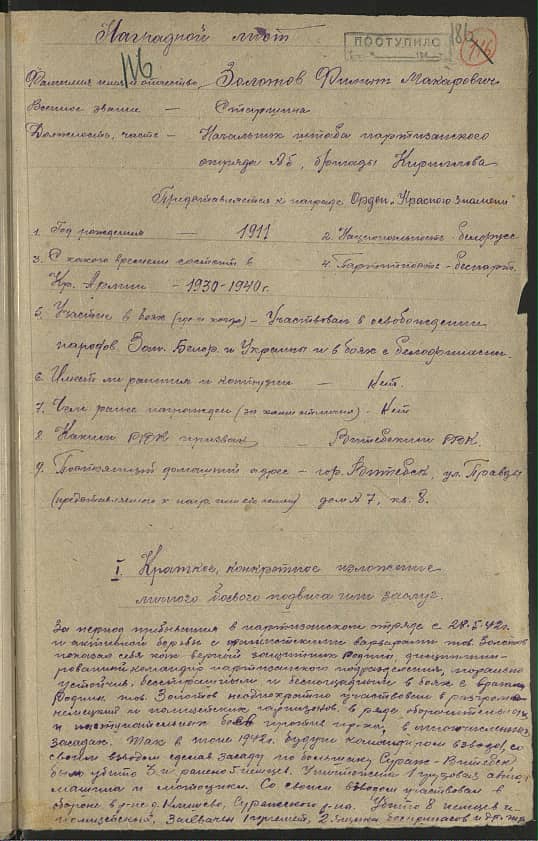 Наградной лист
ПОСТУПИЛО
186
116
Фамилия имя и отчество, Золотов Филипп Макарович
Военное звание — Старшина
Должность, часть — Начальник штаба партизанского
отряда №6, бригады Кириллова
Представляется к награде Орден „Красного знамени"
1. Год рождения — 1911
2. Национальность - белорусс
3. С какого времени состоит в
4. Партийность - беспарт.
Кр. Армии - 1930-1940 г.
5. Участие в боях (где и когда) - Участвовал в освобождении
народов Зап. Белор. и Украины и в боях с белофиннами.
6. Имеет ли ранения и контузии — Нет.
7. Чем ранее награжден (за какие отличия) - Нет
8. Каким РВК призван — Витебским РВК.
9. Постоянный домашний адрес - гор. Витебск, ул. Правды
(представляемого к награ) дом №7, кв. 8.
I. Краткое, конкретное изложение
личного боевого подвига или заслуг.
За период пребывания в партизанском отряде с 28.5.42 г.
и активной борьбы с фашистскими варварами тов. Золотов
показал себя как верный защитник родины, дисциплини-
рованный командир партизанского подразделения, морально
устойчив, бесстрашным и беспощадным в боях с врагами
родины. тов. Золотов неоднократно участвовал в разгроме
немецких и полицейских гарнизонов, в ряде оборонительных
и наступательных боев против врага, в многочисленных
засадах. Так в июле 1942 г. будучи командиром взвода, со
своим взводом сделав засаду по большаку Сураж - Витебск
было убито 3 и ранено 5 немцев. Уничтожили 1 грузовая авто-
машина и мотоцикл. Со своим взводом участвовал в
обороне в р-не д. Суражского р-на. Убито 8 немцев и
полицейский, Захвачен 1 пулемет, 2 ящика боеприпасов и др. тр.